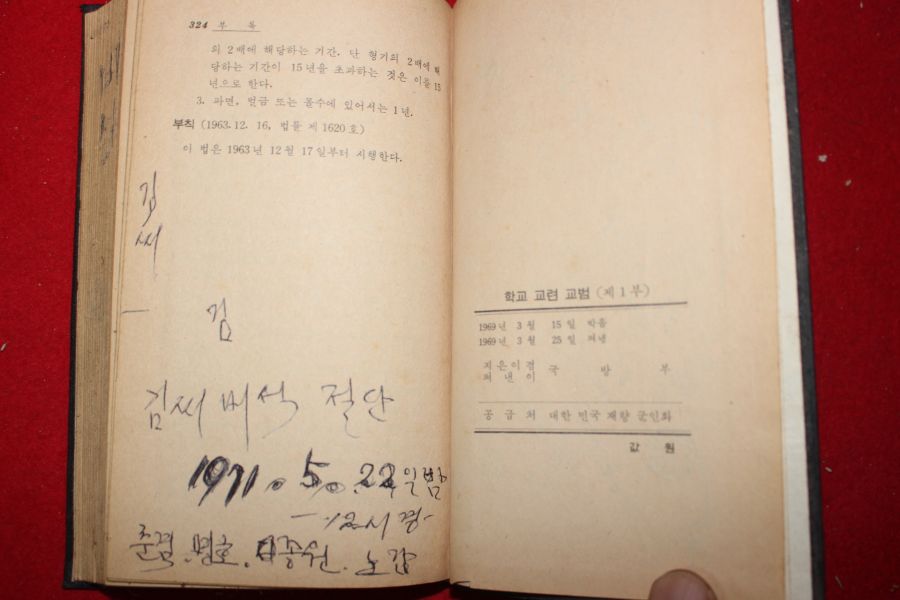 324 부 록
의 2배에 해당하는 기간. 단 형기의 2배에 해
당하는 기간이 15년을 초과하는 것은 이를 15
년으로 한다.
3. 파면, 벌금 또는 몰수에 있어서는 1년.
부칙 (1963. 12. 16, 법률 제 1620 호)
이 법은 1963년 12월 17일부터 시행한다.
김
씨
김
김씨 비석 절단
1971. 5. 22일 밤
-12시경-
학교 교련 교범 (제 1 부)
1969년 3월 15일 박음
1969년 3월 25일 펴냄
지은이 겸
펴낸이 국 방 부
공급처 대한 민국 재향 군인회
값 원